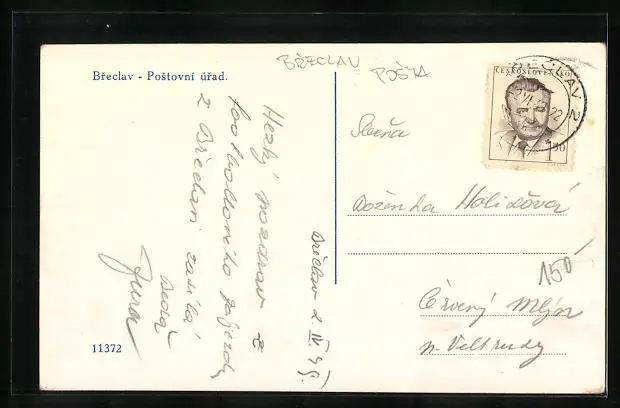 BŘECLAV
POŠTA
Břeclav - Poštovní úřad.
ČESKOSLOVENSKO
BŘECLAV 2
1.50
Hezký pozdrav z
footbalového zájezdu
z Břeclavi zasílá
Jura
Břeclav 2 IV. 49.
Slečna
Boženka Holišová
150
Červený Mlýn
p. Veltrusy
11372